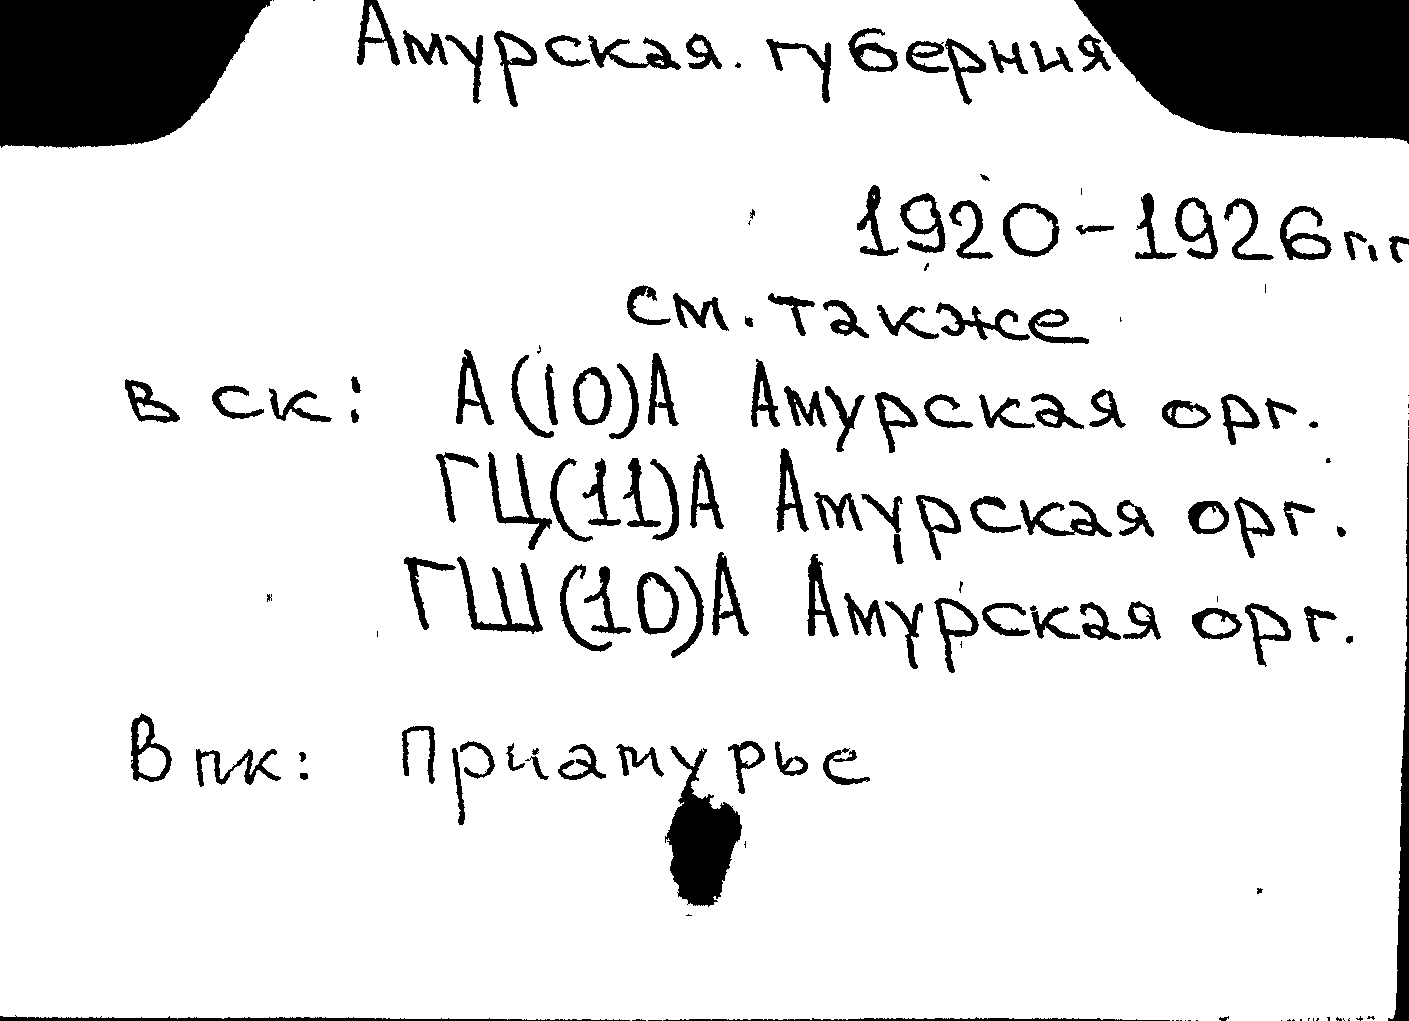 Амурская губерния
1920-1926 г.г
см. также
в ск: А(10)А Амурская орг.
ГЦ(11)А Амурская орг.
ГШ(10)А Амурская орг.
В пк: Приамурье